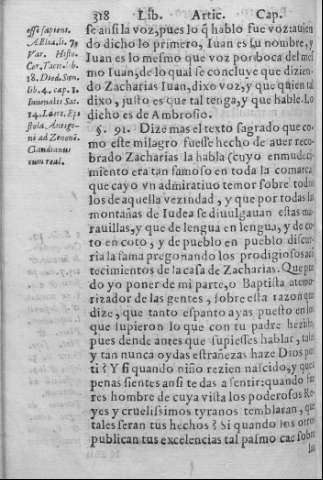 318 Lib. Artic. Cap.
esse sapient.
Ælia. li. 7.
Var. Histo.
Cor. Tac. li.
18. Diod. Sin.
lib. 4. cap. 1.
Iuuenalis Sat.
14. Laert. Epi
stola. Antigo
ni ad Zenonē.
Claudianus
cum real.
se ansi la voz, pues lo q̃ hablò fue voz: auien
do dicho lo primero, Iuan es su nombre, y
Iuan es lo mesmo que voz por boca del mes
mo Iuan, de lo qual se concluye que dizien-
do Zacharias Iuan, dixo voz, y que quien tal
dixo, justo es que tal tenga, y que hable. Lo
dicho es de Ambrosio.
§. 91. Dize mas el texto sagrado que co-
mo este milagro fuesse hecho de auer reco-
brado Zacharias la habla (cuyo enmudeci-
miento era tan famoso en toda la comarca)
que cayo vn admiratiuo temor sobre todos
los de aquella vezindad, y que por todas las
montañas de Iudea se diuulgauan estas ma-
rauillas, y que de lengua en lengua, y de co-
to en coto, y de pueblo en pueblo discur-
ria la fama pregonando los prodigiosos ac-
tecimientos de la casa de Zacharias. Que pue
do yo poner de mi parte, o Baptista atemo-
rizador de las gentes, sobre esta razon que
dize, que tanto espanto ayas puesto en los
que supieron lo que con tu padre hezist
pues dende antes que supiesses hablar, tales
y tan nunca oydas estrañezas haze Dios por
ti? Y si quando niño rezien nascido, y que
penas sientes ansi te das a sentir: quando fue
res hombre de cuya vista los poderosos Re-
yes y cruelissimos tyranos temblaran, que
tales seran tus hechos? Si quando los otros
publican tus excelencias tal pasmo cae sobre